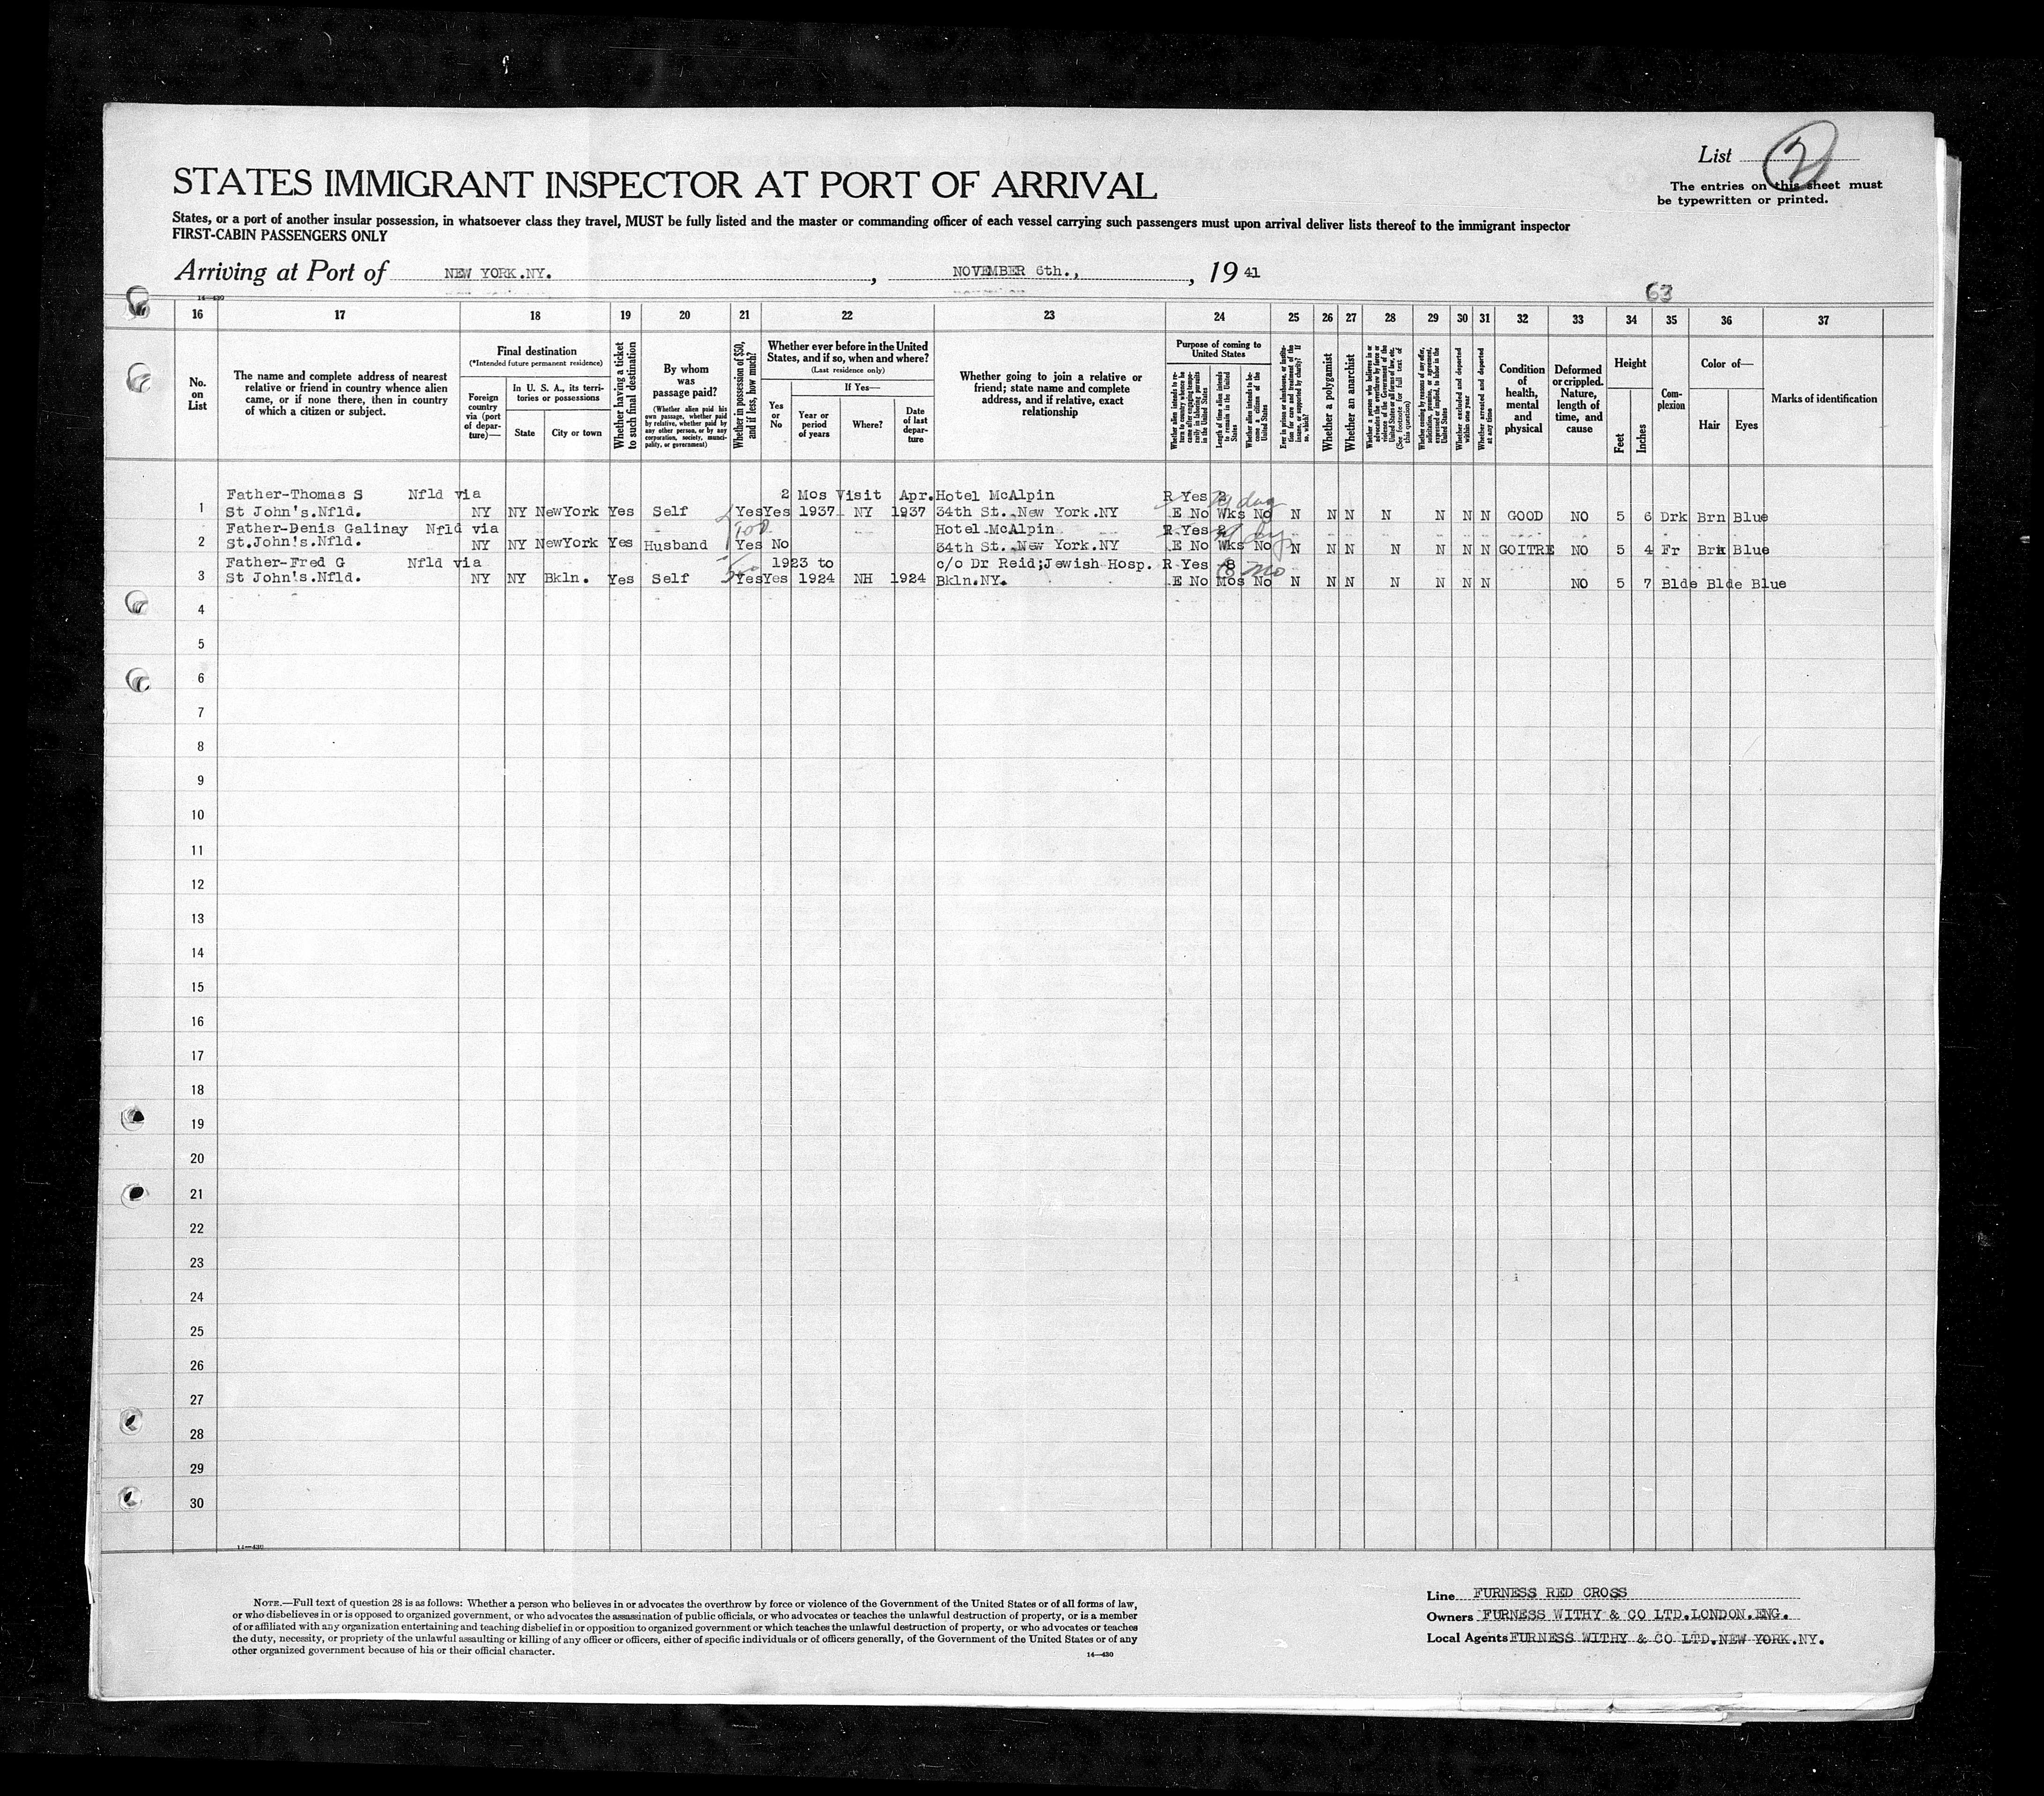 List 2
The entries on this sheet must
be typewritten or printed.
STATES IMMIGRANT INSPECTOR AT PORT OF ARRIVAL
States, or a port of another insular possession, in whatsoever class they travel, MUST be fully listed and the master or commanding officer of each vessel carrying such passengers must upon arrival deliver lists thereof to the immigrant inspector
FIRST-CABIN PASSENGERS ONLY
Arriving at Port of NEW YORK.NY. , NOVEMBER 6th., , 19 41
63
14—430
16 17 18 19 20 21 22 23 24 25 26 27 28 29 30 31 32 33 34 35 36 37
No. on List
The name and complete address of nearest relative or friend in country whence alien came, or if none there, then in country of which a citizen or subject.
Final destination
(*Intended future permanent residence)
Foreign country via (port of departure)—
In U. S. A., its territories or possessions
State
City or town
Whether having a ticket to such final destination
By whom was passage paid?
(Whether alien paid his own passage, whether paid by relative, whether paid by any other person, or by any corporation, society, municipality, or government)
Whether in possession of $50, and if less, how much?
Whether ever before in the United States, and if so, when and where?
(Last residence only)
Yes or No
If Yes—
Year or period of years
Where?
Date of last departure
Whether going to join a relative or friend; state name and complete address, and if relative, exact relationship
Purpose of coming to United States
Whether alien intends to return to country whence he came after engaging temporarily in laboring pursuits in the United States
Length of time alien intends to remain in the United States
Whether alien intends to become a citizen of the United States
Ever in prison or almshouse, or institution for care and treatment of the insane, or supported by charity? If so, which?
Whether a polygamist
Whether an anarchist
Whether a person who believes in or advocates the overthrow by force or violence of the Government of the United States or all forms of law, etc. (See footnote for full text of this question)
Whether coming by reasons of any offer, solicitation, promise, or agreement, expressed or implied, to labor in the United States
Whether excluded and deported within one year
Whether arrested and deported at any time
Condition of health, mental and physical
Deformed or crippled. Nature, length of time, and cause
Height
Feet
Inches
Complexion
Color of—
Hair
Eyes
Marks of identification
Father-Thomas S Nfld via 2 Mos Visit Apr. Hotel McAlpin R Yes 2
1 St John's.Nfld. NY NY NewYork Yes Self Yes Yes 1937 NY 1937 34th St. New York.NY E No Wks No N N N N N N N GOOD NO 5 6 Drk Brn Blue
Father-Denis Galinay Nfld via 100 Hotel McAlpin R Yes 2
2 St.John's.Nfld. NY NY NewYork Yes Husband Yes No 34th St. New York.NY E No Wks No N N N N N N N GOITRE NO 5 4 Fr Brn Blue
Father-Fred G Nfld via 1923 to c/o Dr Reid;Jewish Hosp. R Yes 8 8 mo
3 St John's.Nfld. NY NY Bkln. Yes Self Yes Yes 1924 NH 1924 Bkln.NY. E No Mos No N N N N N N N NO 5 7 Blde Blde Blue
4
5
6
7
8
9
10
11
12
13
14
15
16
17
18
19
20
21
22
23
24
25
26
27
28
29
30
14—430
NOTE.—Full text of question 28 is as follows: Whether a person who believes in or advocates the overthrow by force or violence of the Government of the United States or of all forms of law,
or who disbelieves in or is opposed to organized government, or who advocates the assassination of public officials, or who advocates or teaches the unlawful destruction of property, or is a member
of or affiliated with any organization entertaining and teaching disbelief in or opposition to organized government or which teaches the unlawful destruction of property, or who advocates or teaches
the duty, necessity, or propriety of the unlawful assaulting or killing of any officer or officers, either of specific individuals or of officers generally, of the Government of the United States or of any
other organized government because of his or their official character.
14—430
Line FURNESS RED CROSS
Owners FURNESS WITHY & CO LTD.LONDON.ENG.
Local Agents FURNESS WITHY & CO LTD.NEW YORK.NY.